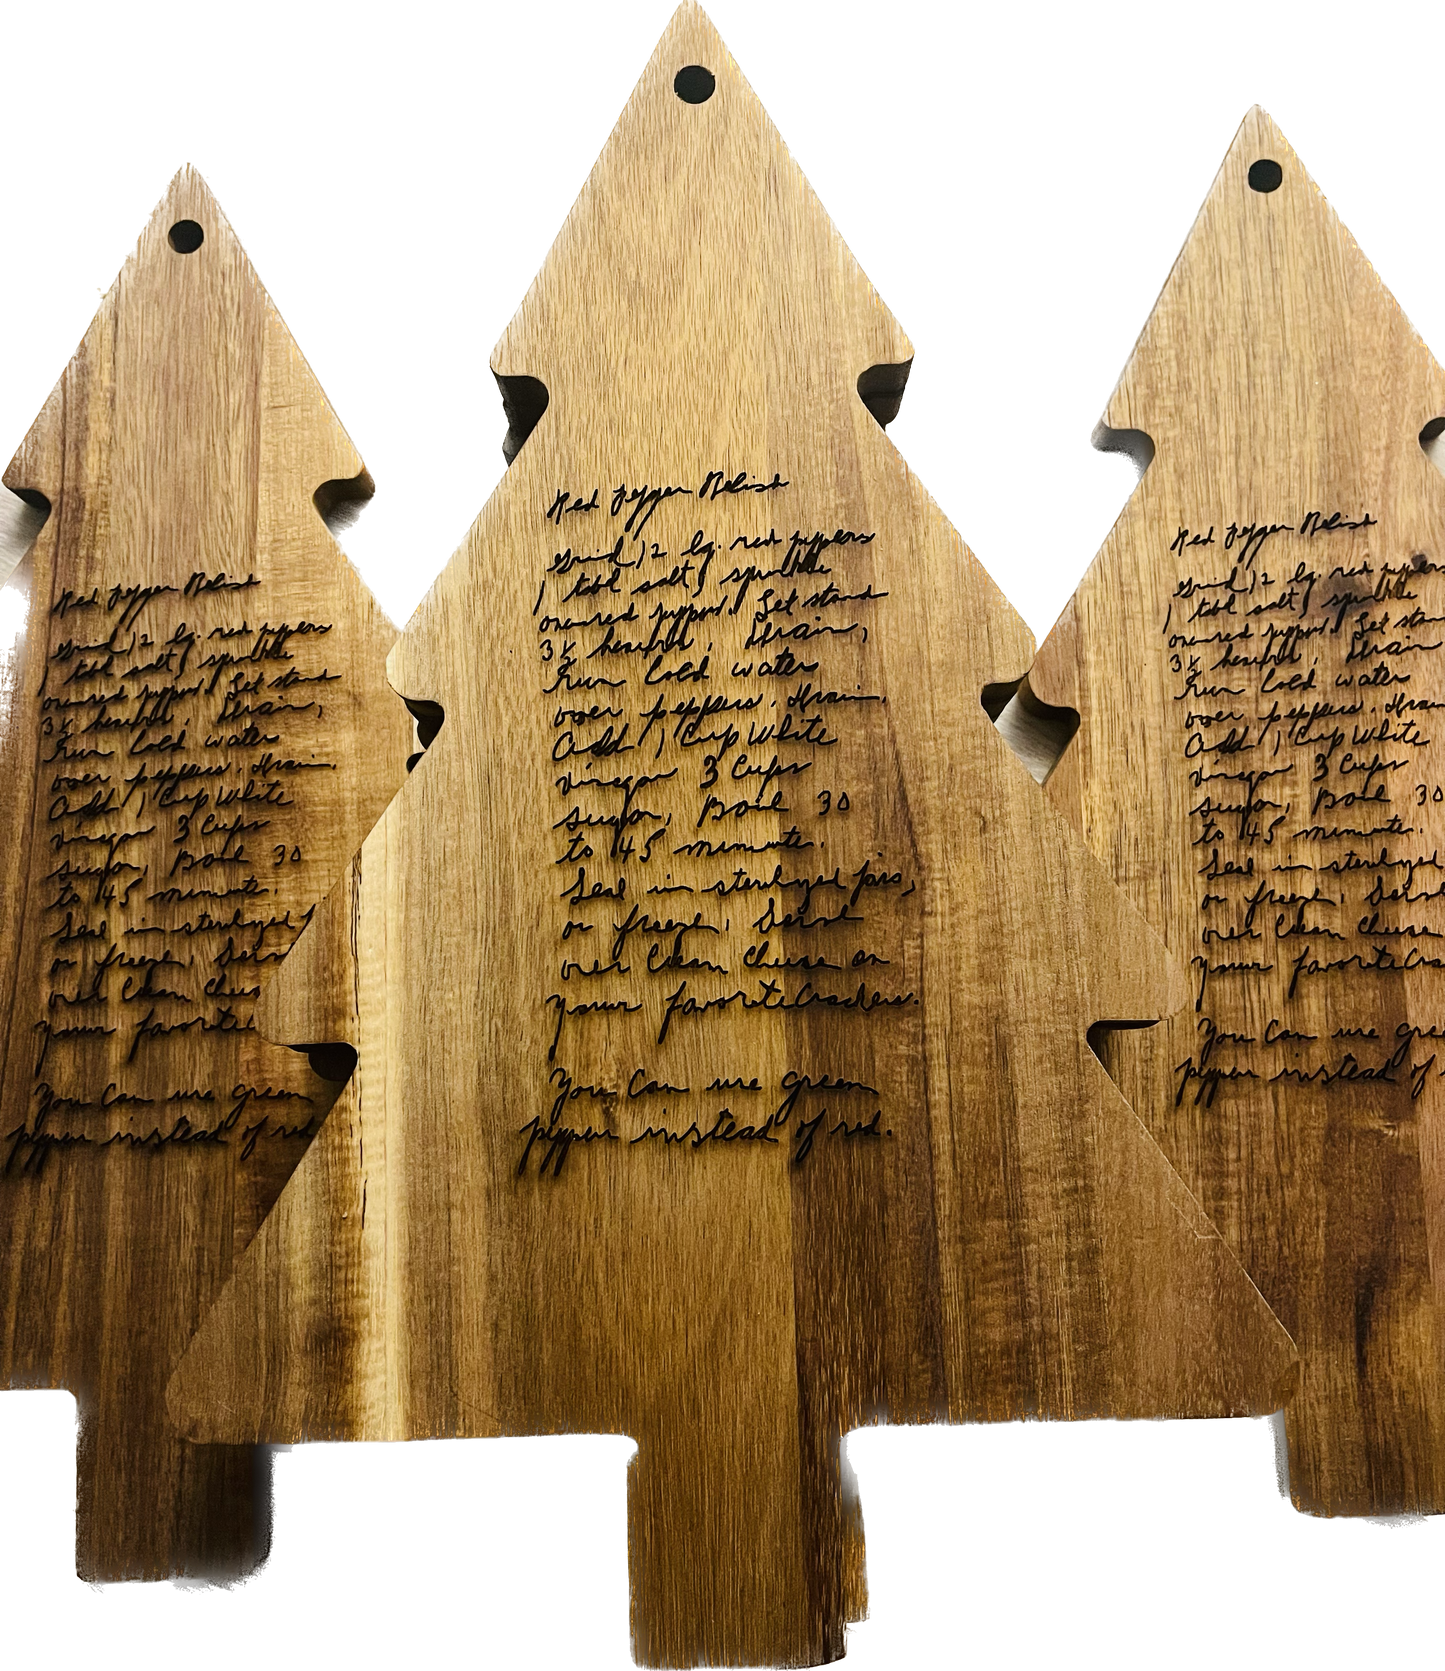 Red Pepper Relish
Grind 12 lg. red peppers
1 tabl salt, sprinkle
over red peppers. Let stand
3½ hours. Drain,
Run Cold water
over peppers. Drain.
Add 1 Cup White
Vinegar 3 Cups
sugar, Boil 30
to 45 minute.
Seal in sterilized jars,
or freeze, Serve
over Cream Cheese on
your favorite Crackers.
You Can use green
pepper instead of red.
Red Pepper Relish
Grind 12 lg. red peppers
1 tabl salt, sprinkle
over red peppers. Let stand
3½ hours. Drain,
Run Cold water
over peppers. Drain.
Add 1 Cup White
Vinegar 3 Cups
sugar, Boil 30
to 45 minute.
Seal in sterilized
or freeze, Serv
over Cream Chees
your favorite
You Can use green
pepper instead of red
Red Pepper Relish
Grind 12 lg. red peppers
1 tabl salt, sprinkle
over red peppers. Let stan
3½ hours. Drain
Run Cold water
over peppers. Drain
Add 1 Cup White
Vinegar 3 Cups
sugar, Boil 30
to 45 minute.
Seal in sterilized
or freeze, Serve
over Cream Cheese
your favorite Cra
You Can use gree
pepper instead of